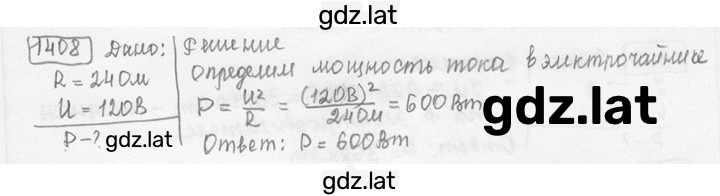 gdz.lat
1408 Дано: Решение
R = 24 Ом Определим мощность тока в электрочайнике
U = 120 В P = U²/R = (120 В)²/24 Ом = 600 Вт
P - ? Ответ: P = 600 Вт
gdz.lat
gdz.lat
gdz.lat